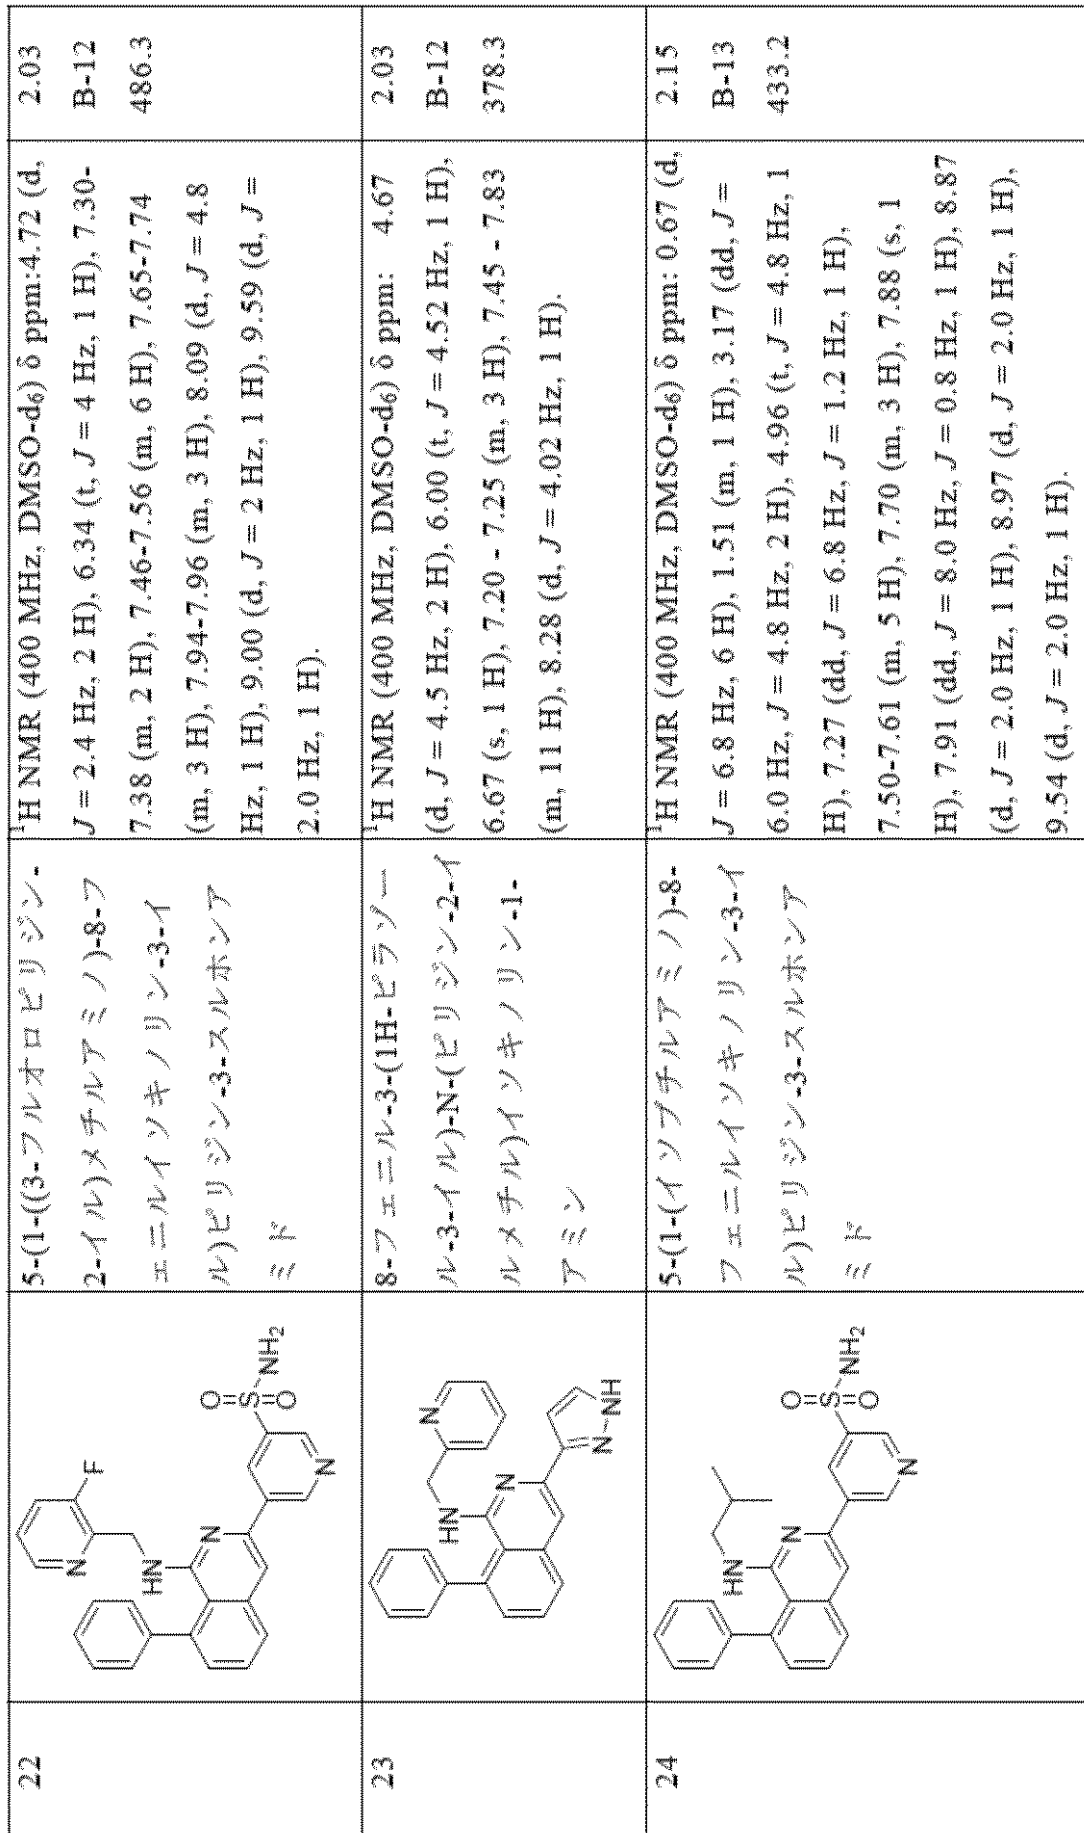 22
F
N
HN
N
N
O
S
O
NH₂
5-(1-((3-フルオロピリジン-
2-イル)メチルアミノ)-8-フ
ェニルイソキノリン-3-イ
ル)ピリジン-3-スルホンア
ミド
¹H NMR (400 MHz, DMSO-d₆) δ ppm:4.72 (d,
J = 2.4 Hz, 2 H), 6.34 (t, J = 4 Hz, 1 H), 7.30-
7.38 (m, 2 H), 7.46-7.56 (m, 6 H), 7.65-7.74
(m, 3 H), 7.94-7.96 (m, 3 H), 8.09 (d, J = 4.8
Hz, 1 H), 9.00 (d, J = 2 Hz, 1 H), 9.59 (d, J =
2.0 Hz, 1 H).
2.03
B-12
486.3
23
N
HN
N
N
NH
8-フェニル-3-(1H-ピラゾー
ル-3-イル)-N-(ピリジン-2-イ
ルメチル)イソキノリン-1-
アミン
¹H NMR (400 MHz, DMSO-d₆) δ ppm: 4.67
(d, J = 4.5 Hz, 2 H), 6.00 (t, J = 4.52 Hz, 1 H),
6.67 (s, 1 H), 7.20 - 7.25 (m, 3 H), 7.45 - 7.83
(m, 11 H), 8.28 (d, J = 4.02 Hz, 1 H).
2.03
B-12
378.3
24
HN
N
N
O
S
O
NH₂
5-(1-(イソブチルアミノ)-8-
フェニルイソキノリン-3-イ
ル)ピリジン-3-スルホンア
ミド
¹H NMR (400 MHz, DMSO-d₆) δ ppm: 0.67 (d,
J = 6.8 Hz, 6 H), 1.51 (m, 1 H), 3.17 (dd, J =
6.0 Hz, J = 4.8 Hz, 2 H), 4.96 (t, J = 4.8 Hz, 1
H), 7.27 (dd, J = 6.8 Hz, J = 1.2 Hz, 1 H),
7.50-7.61 (m, 5 H), 7.70 (m, 3 H), 7.88 (s, 1
H), 7.91 (dd, J = 8.0 Hz, J = 0.8 Hz, 1 H), 8.87
(d, J = 2.0 Hz, 1 H), 8.97 (d, J = 2.0 Hz, 1 H),
9.54 (d, J = 2.0 Hz, 1 H).
2.15
B-13
433.2